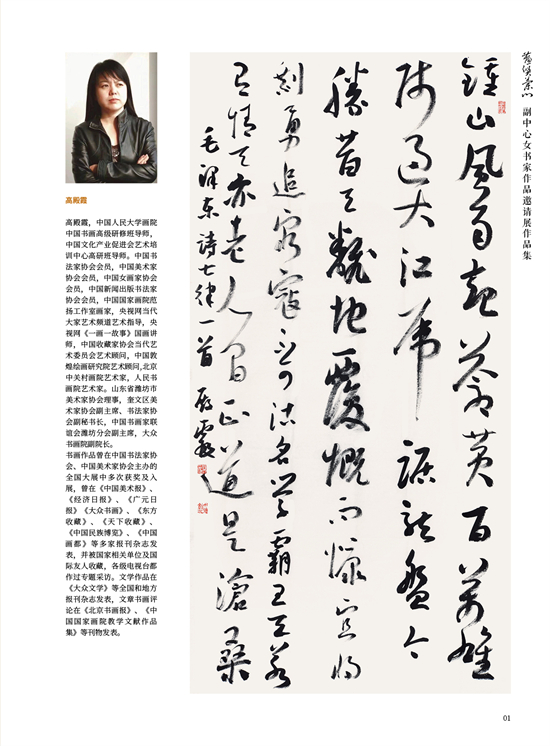 副中心女书家作品邀请展作品集
鍾山風雨起蒼黄百萬雄
师过大江虎踞龙盘今
勝昔天翻地覆慨而慷宜将
剩勇追穷寇不可沽名学霸王天若
有情天亦老人间正道是滄桑
毛泽东诗七律一首 殿霞
高殿霞
高殿霞，中国人民大学画院
中国书画高级研修班导师，
中国文化产业促进会艺术培
训中心高研班导师。中国书
法家协会会员，中国美术家
协会会员，中国女画家协会
会员，中国新闻出版书法家
协会会员，中国国家画院范
扬工作室画家，央视网当代
大家艺术频道艺术指导，央
视网《一画一故事》国画讲
师，中国收藏家协会当代艺
术委员会艺术顾问，中国敦
煌绘画研究院艺术顾问,北京
中关村画院艺术家，人民书
画院艺术家。山东省潍坊市
美术家协会理事，奎文区美
术家协会副主席、书法家协
会副秘书长，中国书画家联
谊会潍坊分会副主席，大众
书画院副院长。
书画作品曾在中国书法家协
会、中国美术家协会主办的
全国大展中多次获奖及入
展，曾在《中国美术报》、
《经济日报》、《广元日
报》《大众书画》、《东方
收藏》、《天下收藏》、
《中国民族博览》、《中国
画都》等多家报刊杂志发
表，并被国家相关单位及国
际友人收藏，各级电视台都
作过专题采访。文学作品在
《大众文学》等全国和地方
报刊杂志发表，文章书画评
论在《北京书画报》、《中
国国家画院教学文献作品
集》等刊物发表。
01